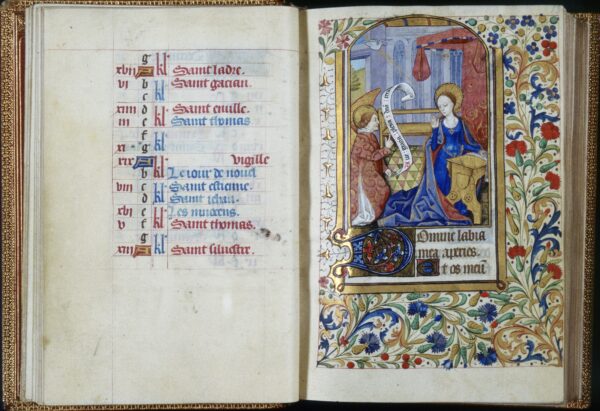 g
xvii A kl Saint ladre.
vi b kl Saint gacian.
c kl
xiiii d kl Saint
iii e kl Saint thomas
f kl
xi g kl
xix A kl vigille
b kl Le iour de nouel
viii c kl Saint estienne.
d kl Saint iehan
xvi e kl Les
v f kl Saint thomas.
g
xiii A kl Saint siluestre.
Domine labia
mea aperies.
Et os meū